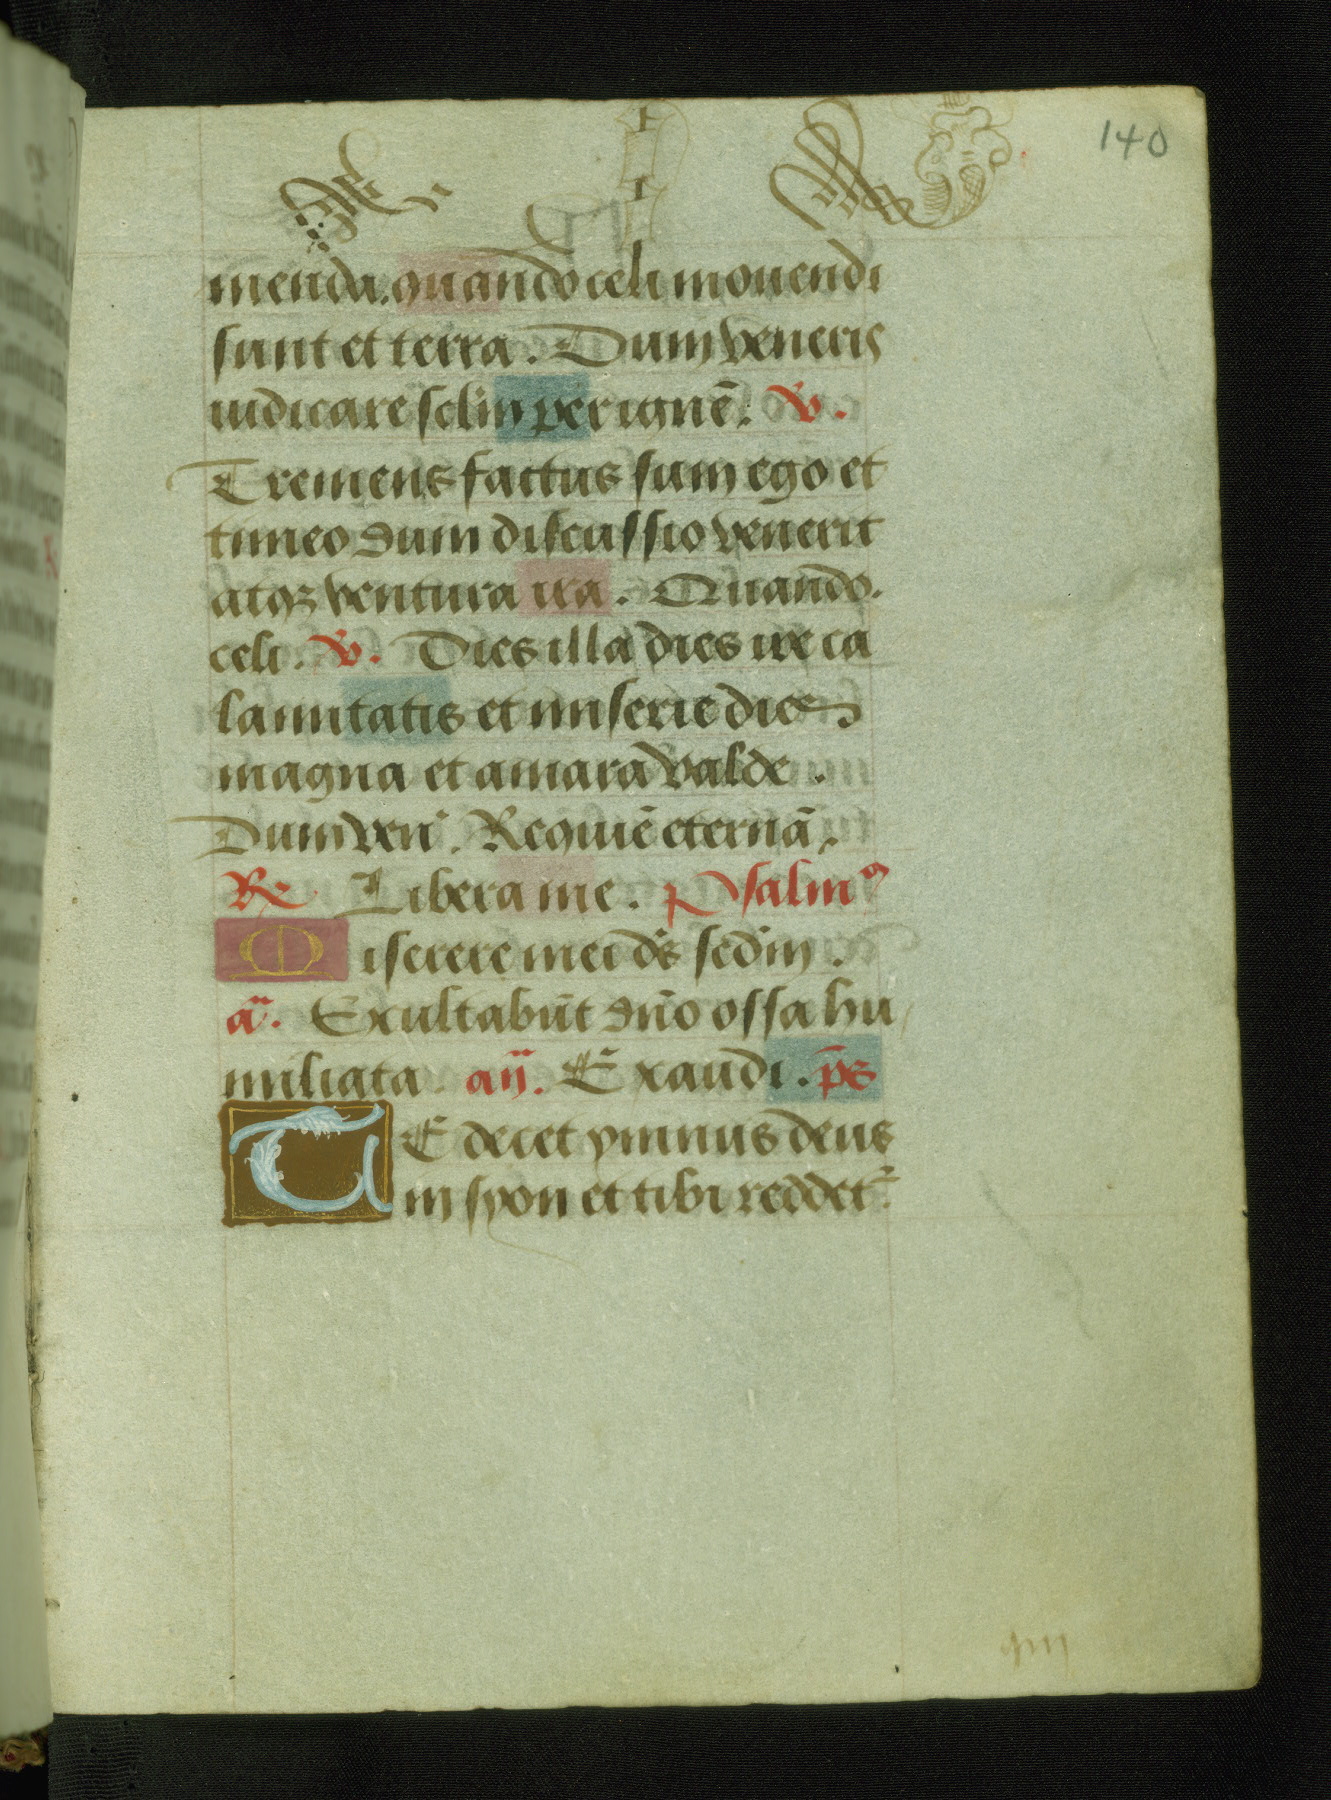 140
menda. quando celi mouendi
sunt et terra. Dum veneris
iudicare sclm per ignē. V.
Tremens factus sum ego et
timeo dum discussio venerit
atqz ventura ira. Quando.
celi. V. Dies illa dies ire ca
lamitatis et miserie dies
magna et amara valde.
Dum ven'. Requiē eternā.
Re Libera me. Psalmꝰ
Miserere mei ds̄ sedm̄.
a. Exultabūt dn̄o ossa hu
miliata. aij. Exaudi. ps̄
TE decet ymnus deus
in syon et tibi reddet᷑